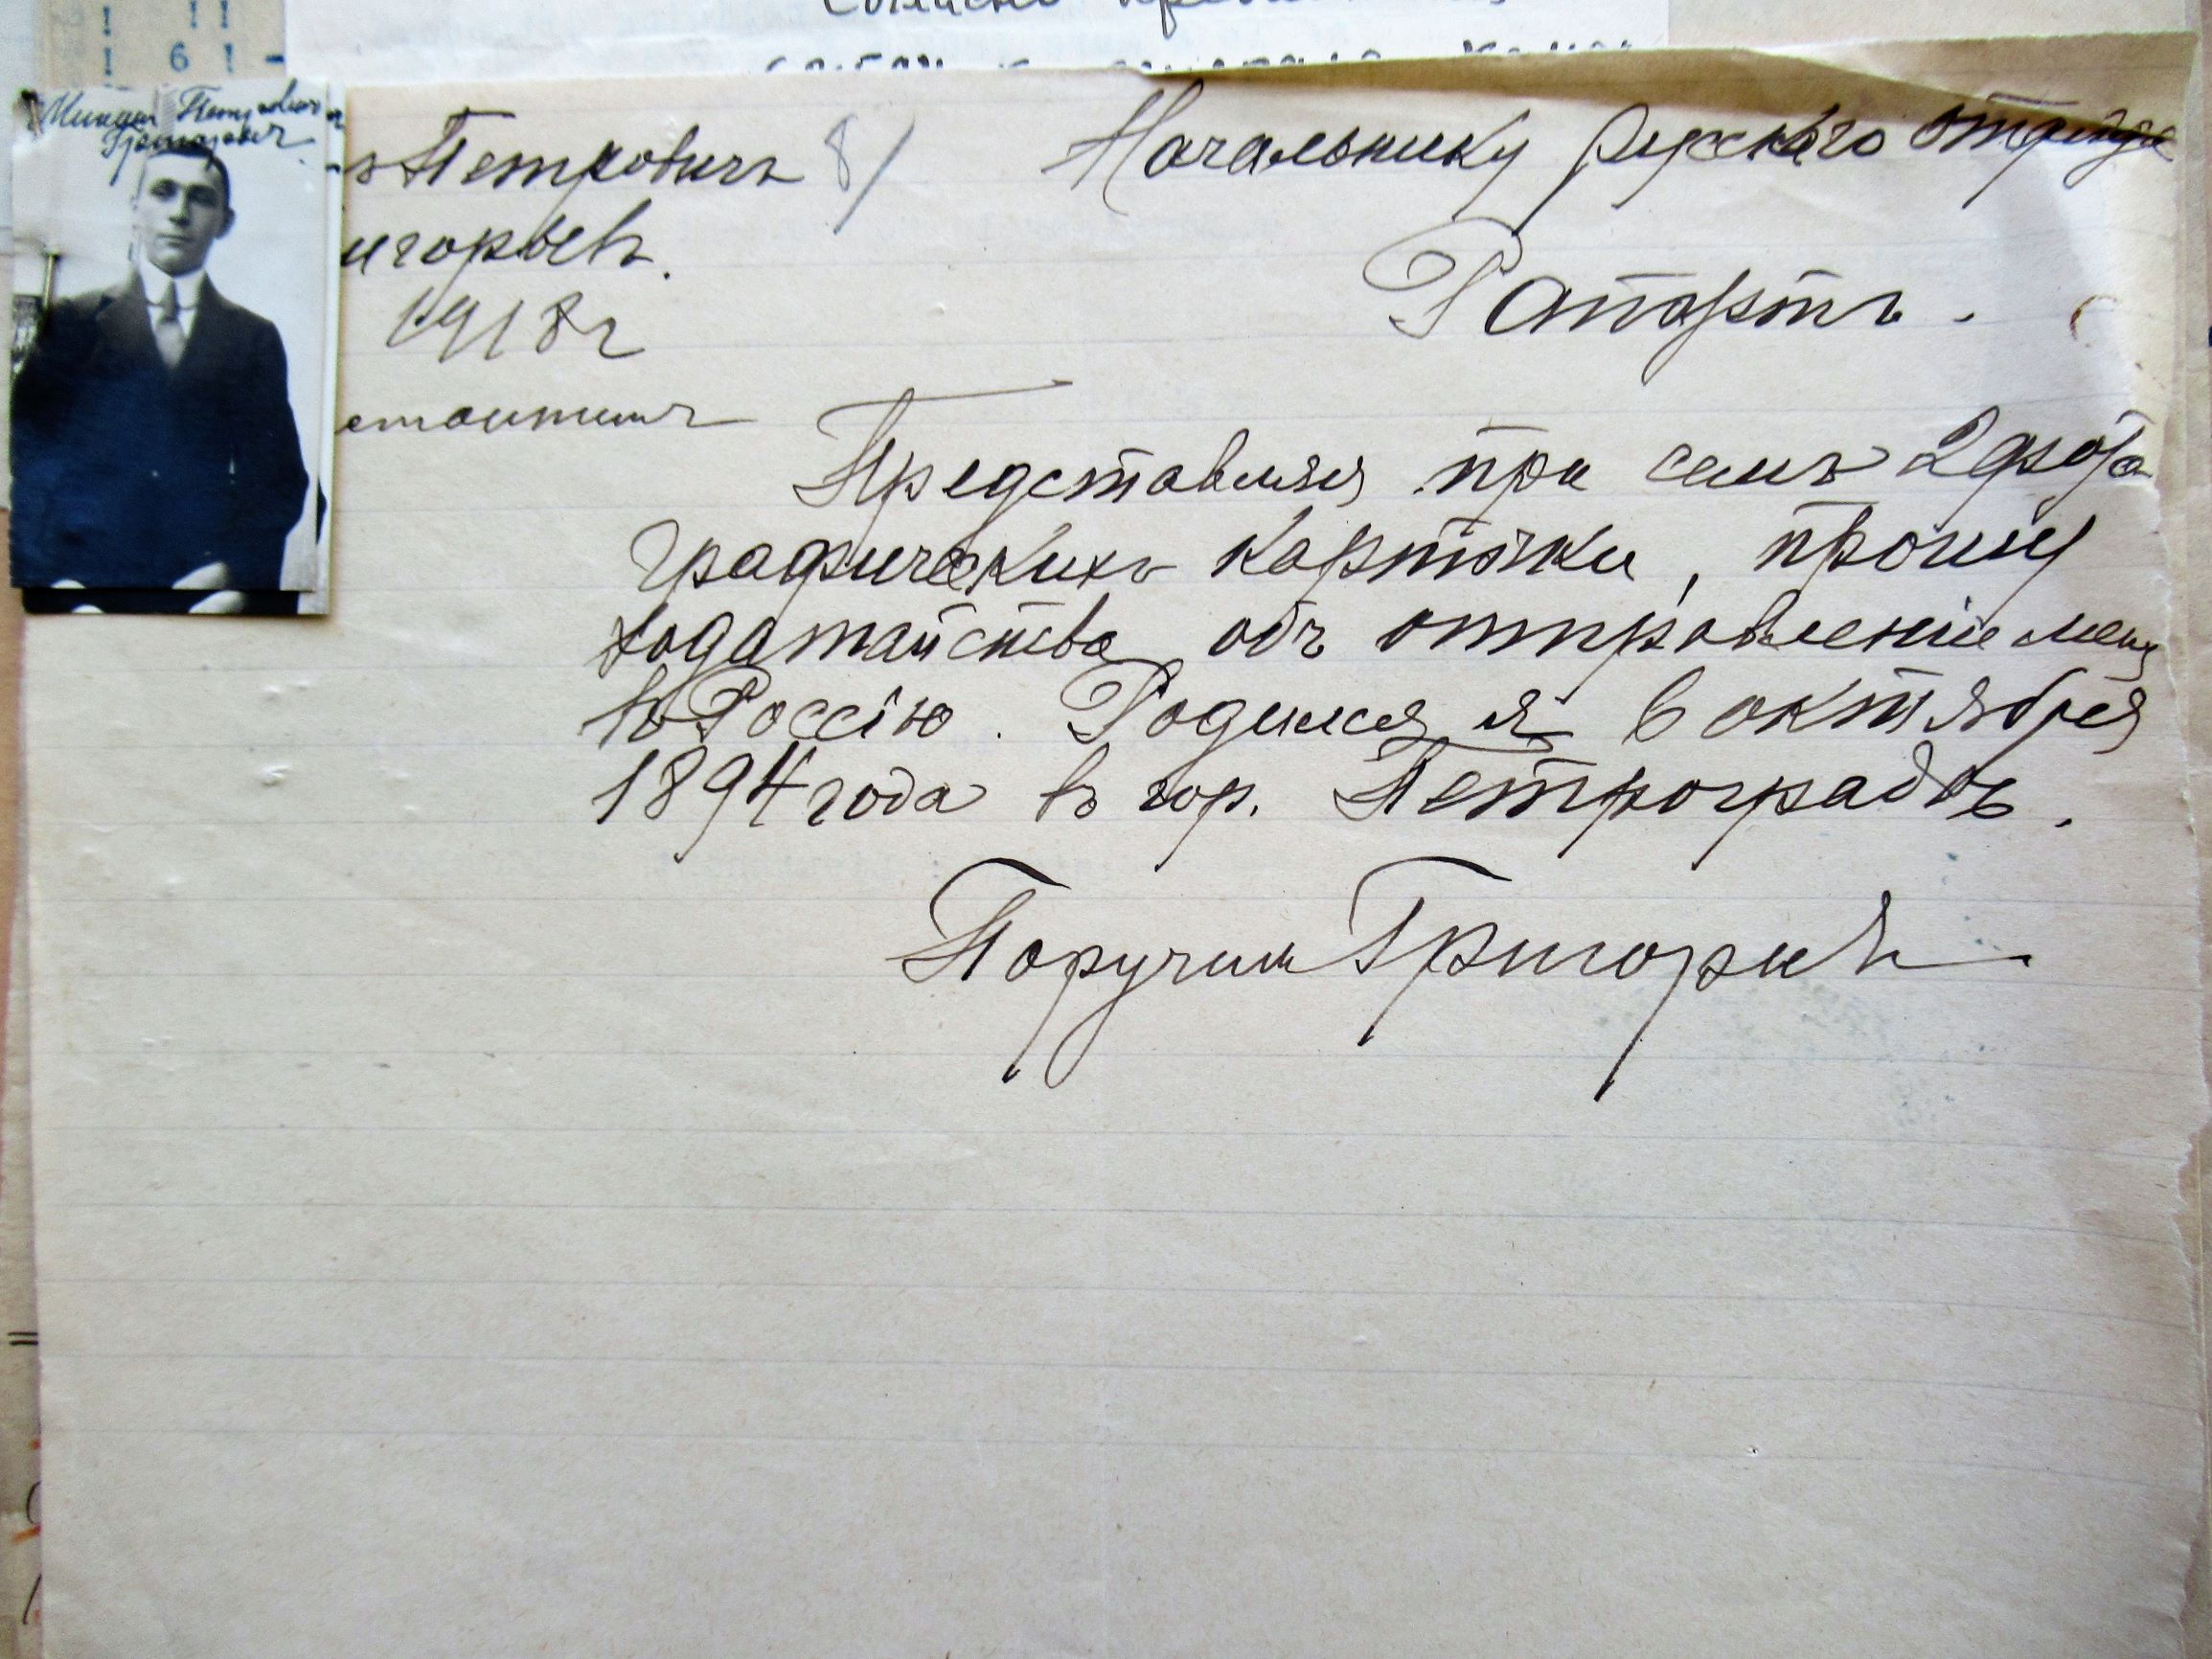 ! !!
! 6 ! -
Петровичъ
Григорьевъ
Петровичъ 8/
игорьевъ.
1918 г
Начальнику Русскаго отряда
Рапортъ.
Представляя при семъ 2 фото
графическихъ карточки, прошу
ходатайства объ отправленіе меня
въ Россію. Родился я 6 октября
1894 года въ гор. Петроградѣ.
Поручикъ Григорьевъ